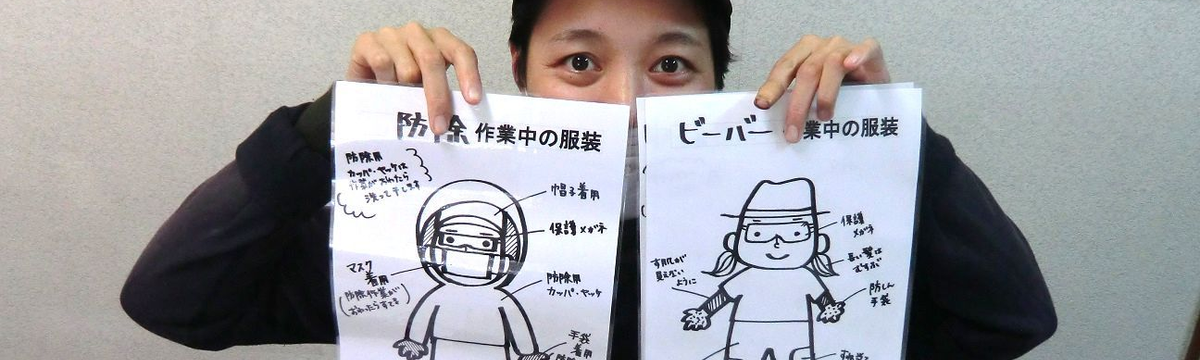 防除 作業中の服装
防除用
カッパ・ヤッケは
作業が終わったら
洗って干します
帽子着用
保護メガネ
マスク
着用
防除用
カッパ・ヤッケ
手袋
着用
ビーバー 作業中の服装
保護
メガネ
長い髪は
むすぶ
素肌が
見えない
ように
防しん
手袋